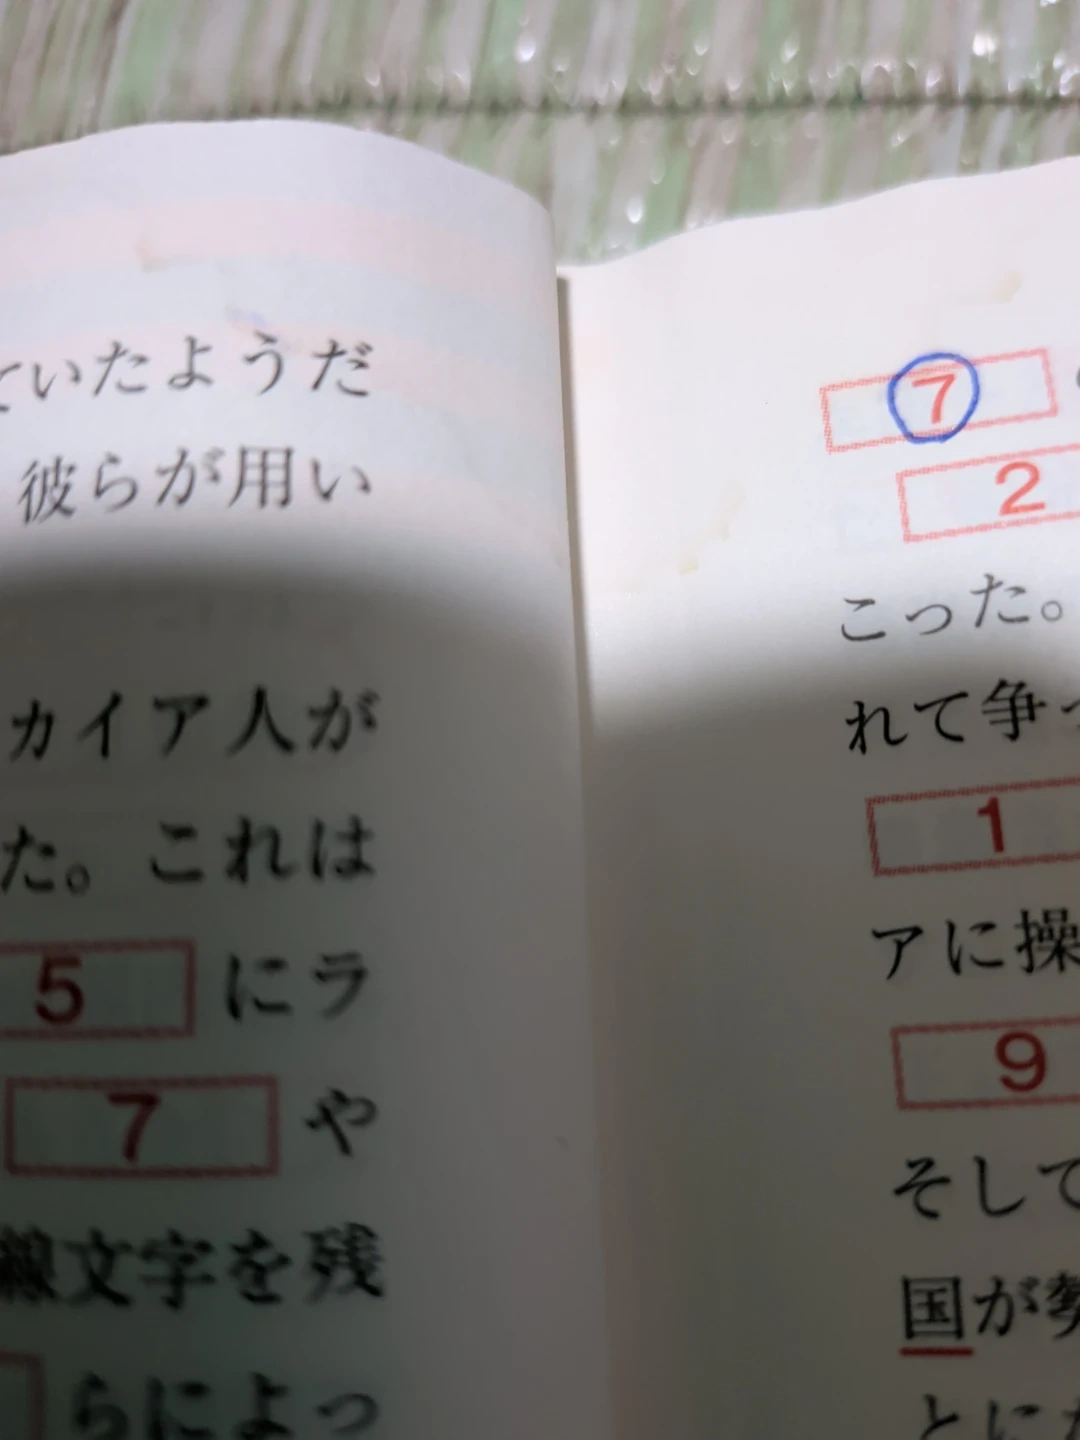 ていたようだ
彼らが用い
カイア人が
た。これは
5 にラ
7 や
線文字を残
らによっ
7
2
こった。
れて争っ
1
アに操
9
そして
国が勢
とにた